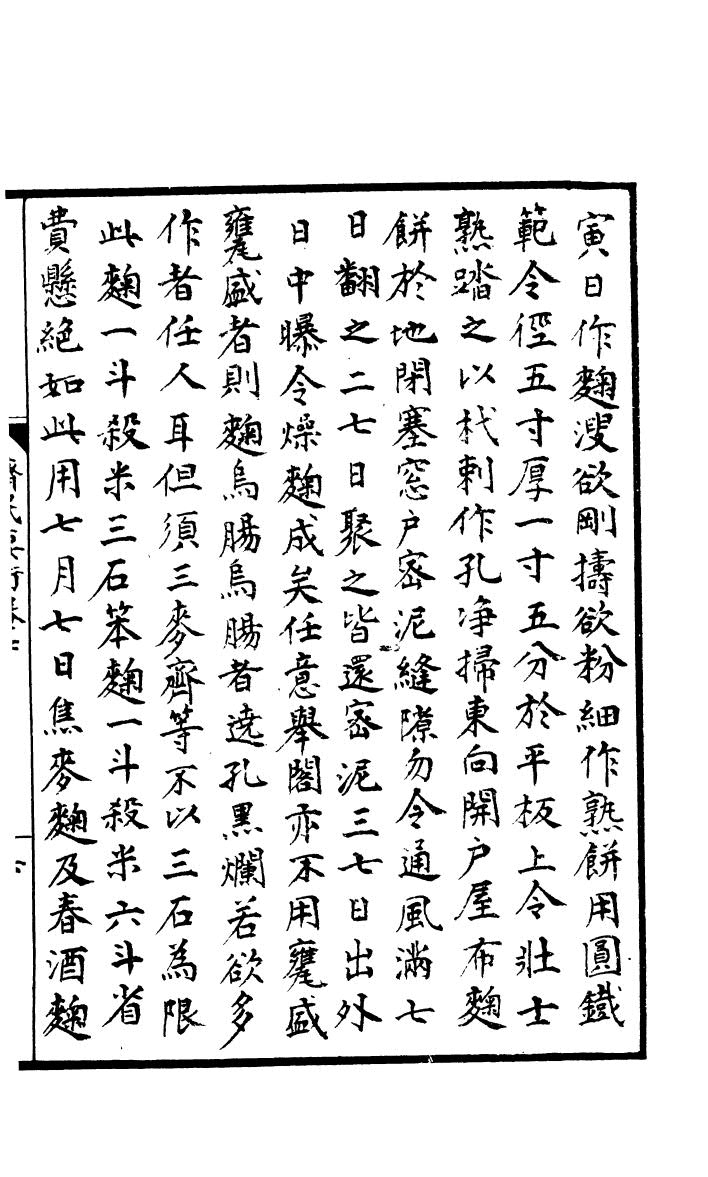 寅日作麴溲欲剛擣欲粉細作熟餅用圓鐵
範令徑五寸厚一寸五分於平板上令壯士
熟踏之以杙刺作孔净掃東向開戸屋布麴
餅於地閉塞窓戸宻泥縫隙勿令通風滿七
日翻之二七日聚之皆還宻泥三七日出外
日中曝令燥麴成矣任意舉閣亦不用甕盛
甕盛者則麴烏腸烏腸者遶孔黒爛若欲多
作者任人耳但須三麥齊等不以三石為限
此麴一斗殺米三石笨麴一斗殺米六斗省
費懸絶如此用七月七日焦麥麴及春酒麴